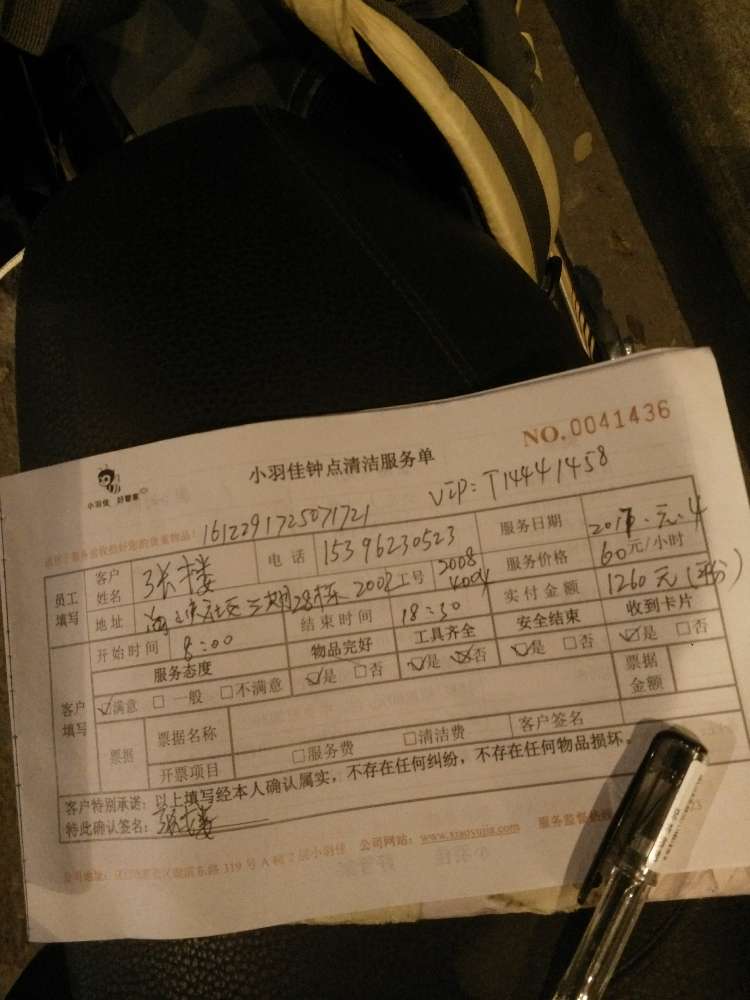 NO.0041436
小羽佳钟点清洁服务单
小羽佳 好管家
VIP: T14441458
1612291725071721
员工填写 客户姓名 张楼 电话 15396230523 服务日期
地址 三期28栋 2008 工号 2008 服务价格 60元/小时
开始时间 8:00 结束时间 18:30 实付金额 1260元
客户填写 服务态度 物品完好 工具齐全 安全结束 收到卡片
☑满意 □一般 □不满意 ☑是 □否 ☑是 ☑否 ☑是 □否 ☑是 □否
票据 票据名称 票据金额
开票项目 □服务费 □清洁费 客户签名
客户特别承诺：以上填写经本人确认属实，不存在任何纠纷，不存在任何物品损坏，
特此确认签名：张楼
公司地址： 东路319号A幢7层小羽佳 公司网站：www.xiaoyujia.com 服务监督热线